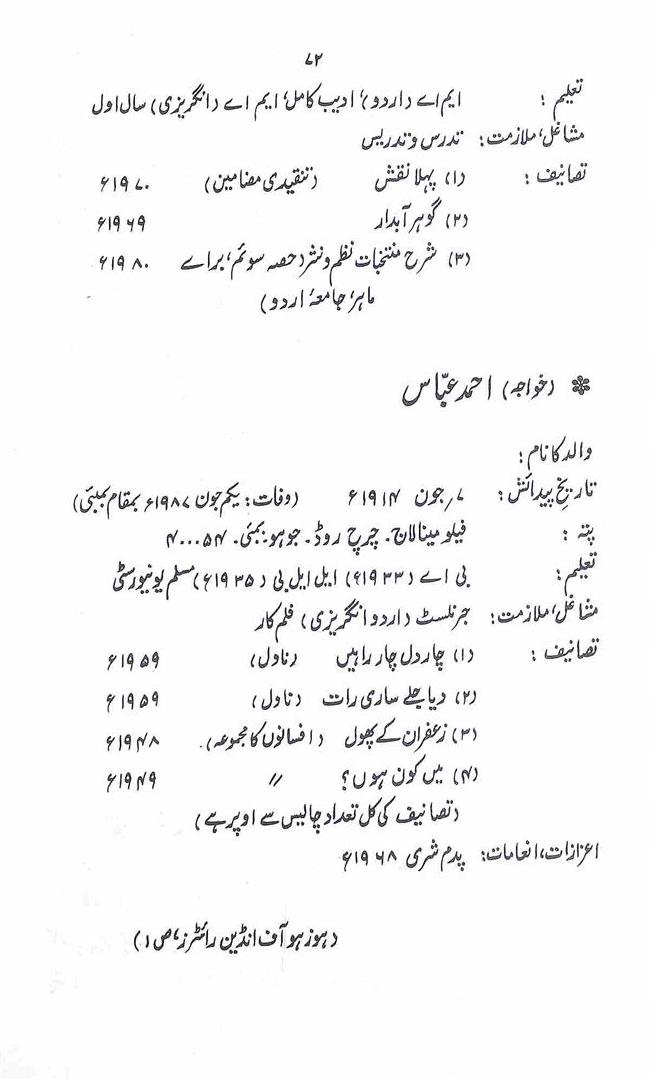 ۷۲
تعلیم : ایم اے (اردو)، ادیب کامل، ایم اے (انگریزی) سال اول
مشاغل، ملازمت: تدرس و تدریس
تصانیف : (۱) پہلا نقش (تنقیدی مضامین) ۱۹۷۰ء
(۲) گوہر آبدار ۱۹۶۹ء
(۳) شرح منتخبات نظم و نثر (حصہ سوئم، براے ۱۹۸۰ء
ماہر، جامعۂ اردو)
(خواجہ) احمد عبّاس
والد کا نام :
تاریخ پیدائش : ۷؍ جون ۱۹۱۴ء (وفات: یکم جون ۱۹۸۷ء بمقام بمبئی)
پتہ : فیلو مینا لاج۔ چرچ روڈ۔ جوہو۔ بمبئی۔ ۴۰۰۰۵۴
تعلیم : بی اے (۱۹۳۳ء) ایل ایل بی (۱۹۳۵ء) مسلم یونیورسٹی
مشاغل، ملازمت: جرنلسٹ (اردو انگریزی) فلم کار
تصانیف : (۱) چار دل چار راہیں (ناول) ۱۹۵۹ء
(۲) دیا جلے ساری رات (ناول) ۱۹۵۹ء
(۳) زعفران کے پھول (افسانوں کا مجموعہ) ۱۹۴۸ء
(۴) میں کون ہوں؟ 〃 ۱۹۴۹ء
(تصانیف کی کل تعداد چالیس سے اوپر ہے)
اعزازات، انعامات: پدم شری ۱۹۶۸ء
(ہوز ہو آف انڈین رائٹرز، ص ۱)